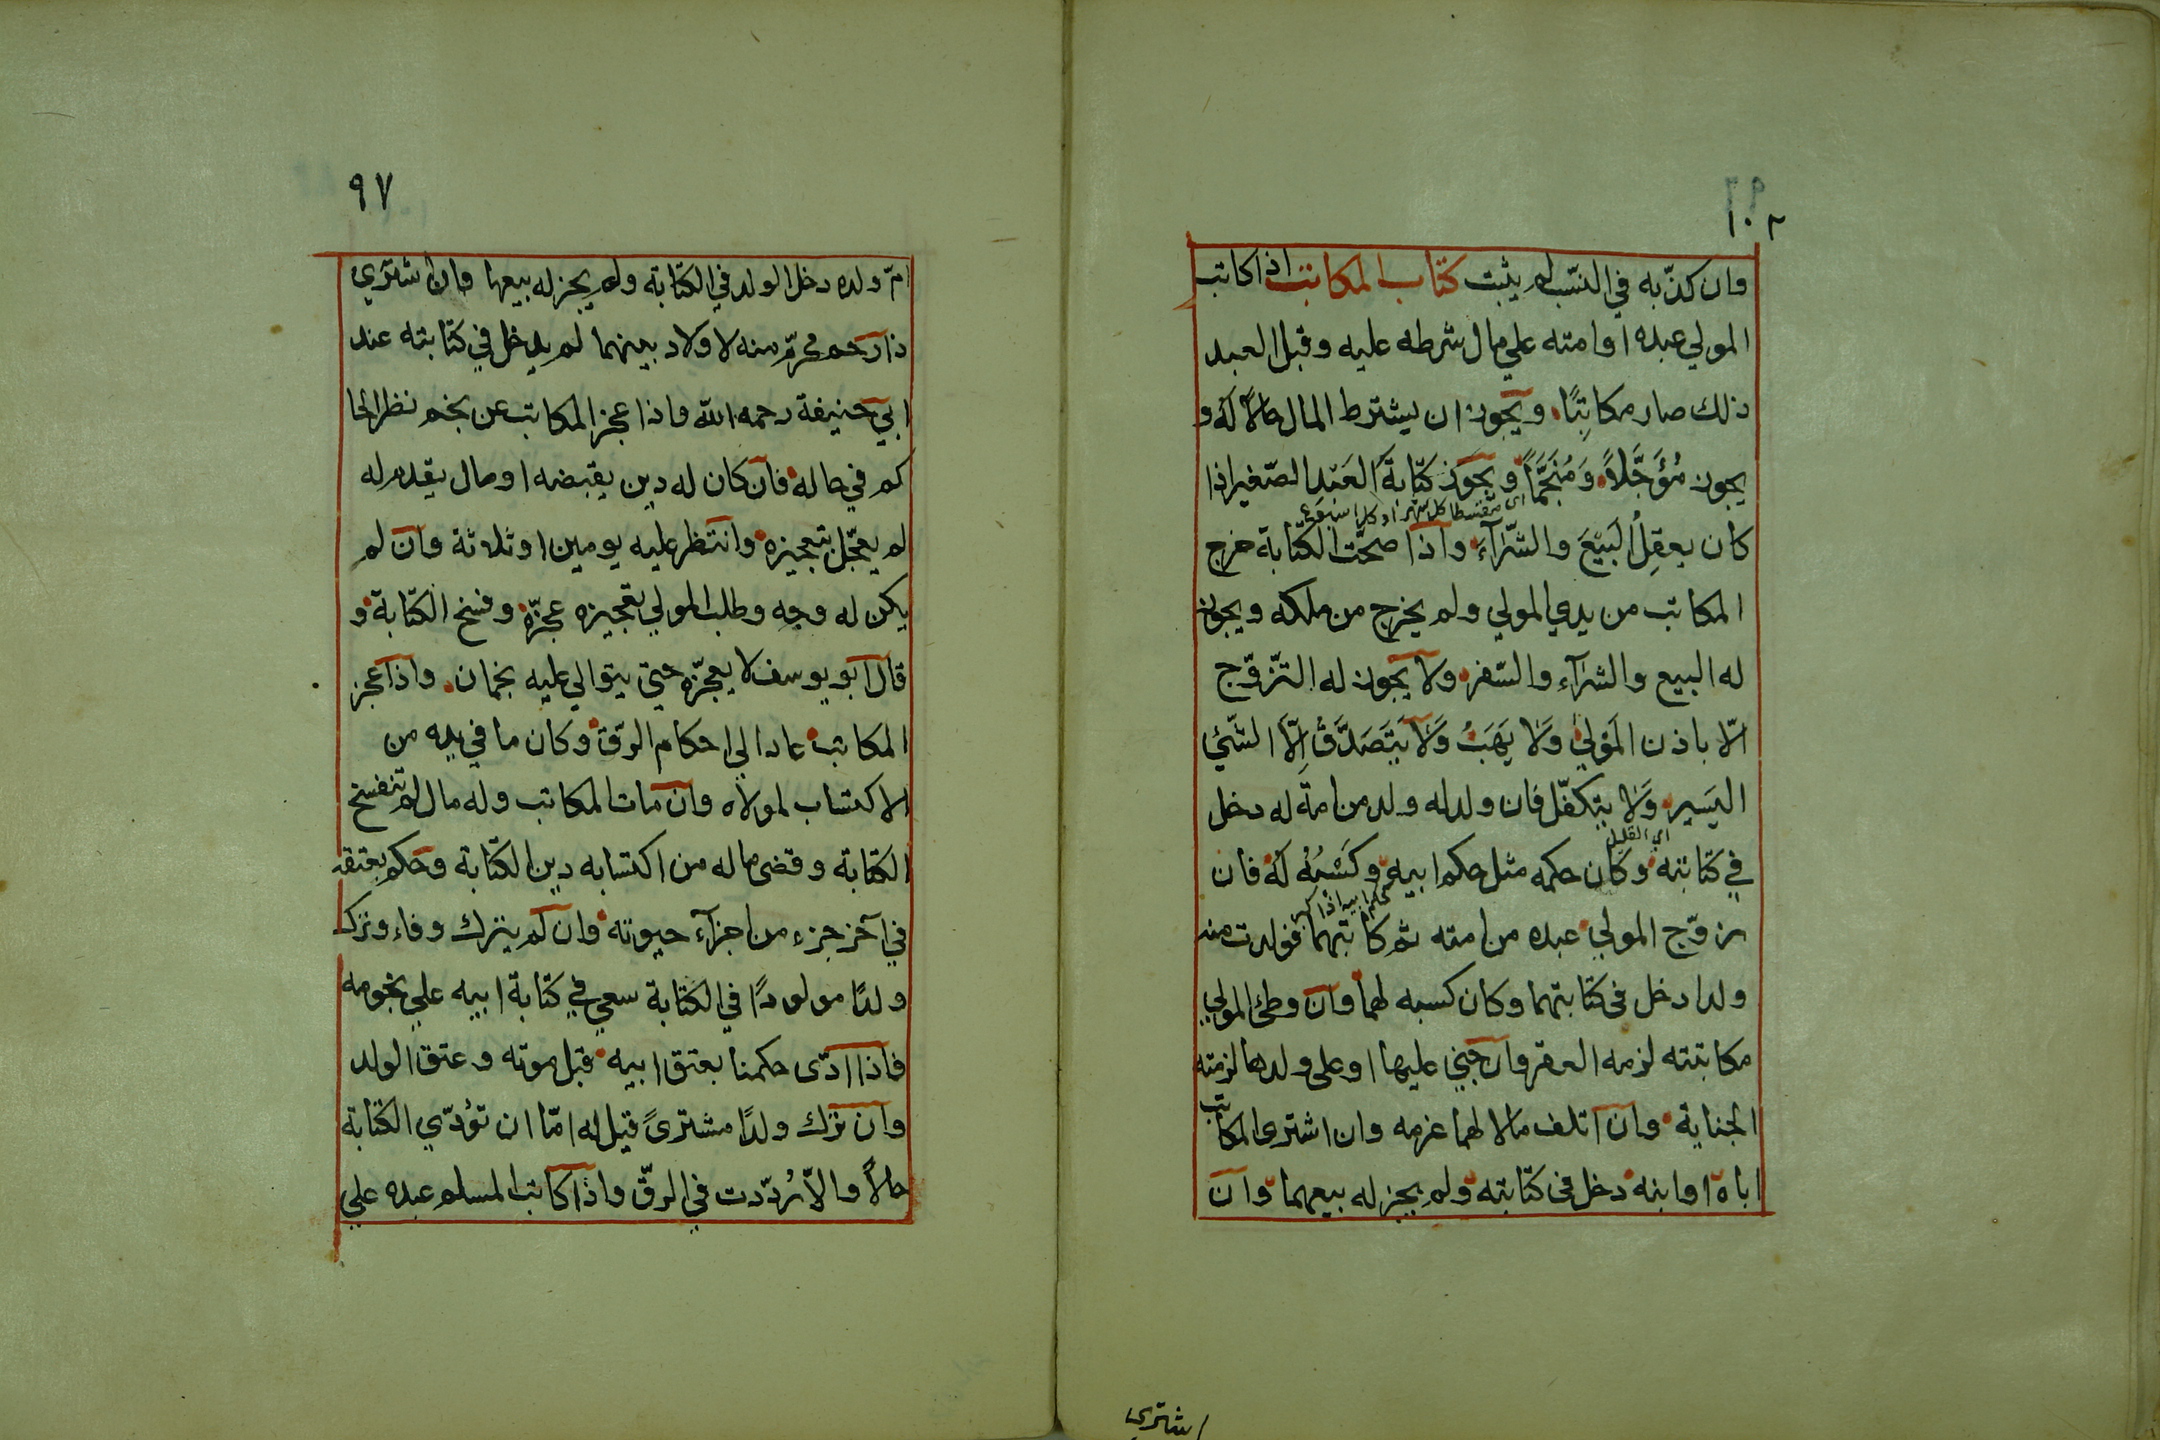 ١٠٢
وان كذّبه في النسب لم يثبت كتاب المكاتب اذا كاتب
المولي عبده او امته علي مال شرطه عليه وقبل العبد
ذلك صار مكاتِبًا ويجوز ان يشترط المال حالًا له و
يجوز مُؤَجَّلاً وَمُنَجَّمًا ويجوز كتابة العَبْدِ الصّغير اذا
اى مقسطا كل شهر او كل اسبوع
كان يعقِلُ البَيْعَ والشّرآءَ واذا صحّت الكتابة خرج
المكاتب من يدي المولي ولم يخرج من ملكه ويجوز
له البيع والشرآء والسّفر ولا يجوز له التزوّج
الّا باذن المَوْلي وَلا يَهَبُ وَلا يَتَصَدَّقُ اِلّا الشّئ
اليَسير وَلا يتكفّل فان ولد له ولد من امة له دخل
اي القليل
في كتابته وكان حكمه مثل حكم ابيه وكَسْبُهُ لَهُ فان
زوّج المولي عبده من امته ثم كاتبهما فولدت منه
ولدا دخل فى كتابتهما وكان كسبه لهما وان وطئ المولي
مكاتبته لزمه العقر وان جني عليها او على ولدها لزمته
الجناية وان اتلف مالا لهما غرمه وان اشترى المكاتب
اباه او ابنه دخل فى كتابته ولم يجز له بيعهما وان
اشتري
٩٧
امّ ولده دخل الولد في الكتابة ولم يجز له بيعها وان اشتري
ذا رحم محرّم منه لا ولاد بينهما لم يدخل في كتابته عند
ابي حنيفة رحمه الله واذا عجز المكاتب عن نجم نظر الحا
كم في حاله فان كان له دين يقبضه او مال يقدم له
لم يعجّل بتعجيزه وانتظر عليه يومين او ثلاثة وان لم
يكن له وجه وطلب المولي تعجيزه عجّزه وفسخ الكتابة و
قال ابو يوسف لا يعجّزه حتي يتوالي عليه نجمان واذا عجز
المكاتب عاد الي احكام الرّق وكان ما في يده من
الاكتساب لمولاه وان مات المكاتب وله مال لم تنفسخ
الكتابة وقضى ما له من اكتسابه دين الكتابة وحكم بعتقه
في آخر جزء من اجزآء حيوته وان لم يترك وفاء وترك
ولدًا مولودًا في الكتابة سعي في كتابة ابيه علي نجومه
فاذا ادّى حكمنا بعتق ابيه قبل موته وعتق الولد
وان ترك ولدًا مشترىً قيل له امّا ان تؤدّي الكتابة
حالاً والاّ رُدّدت في الرقّ واذا كاتب المسلم عبده علي